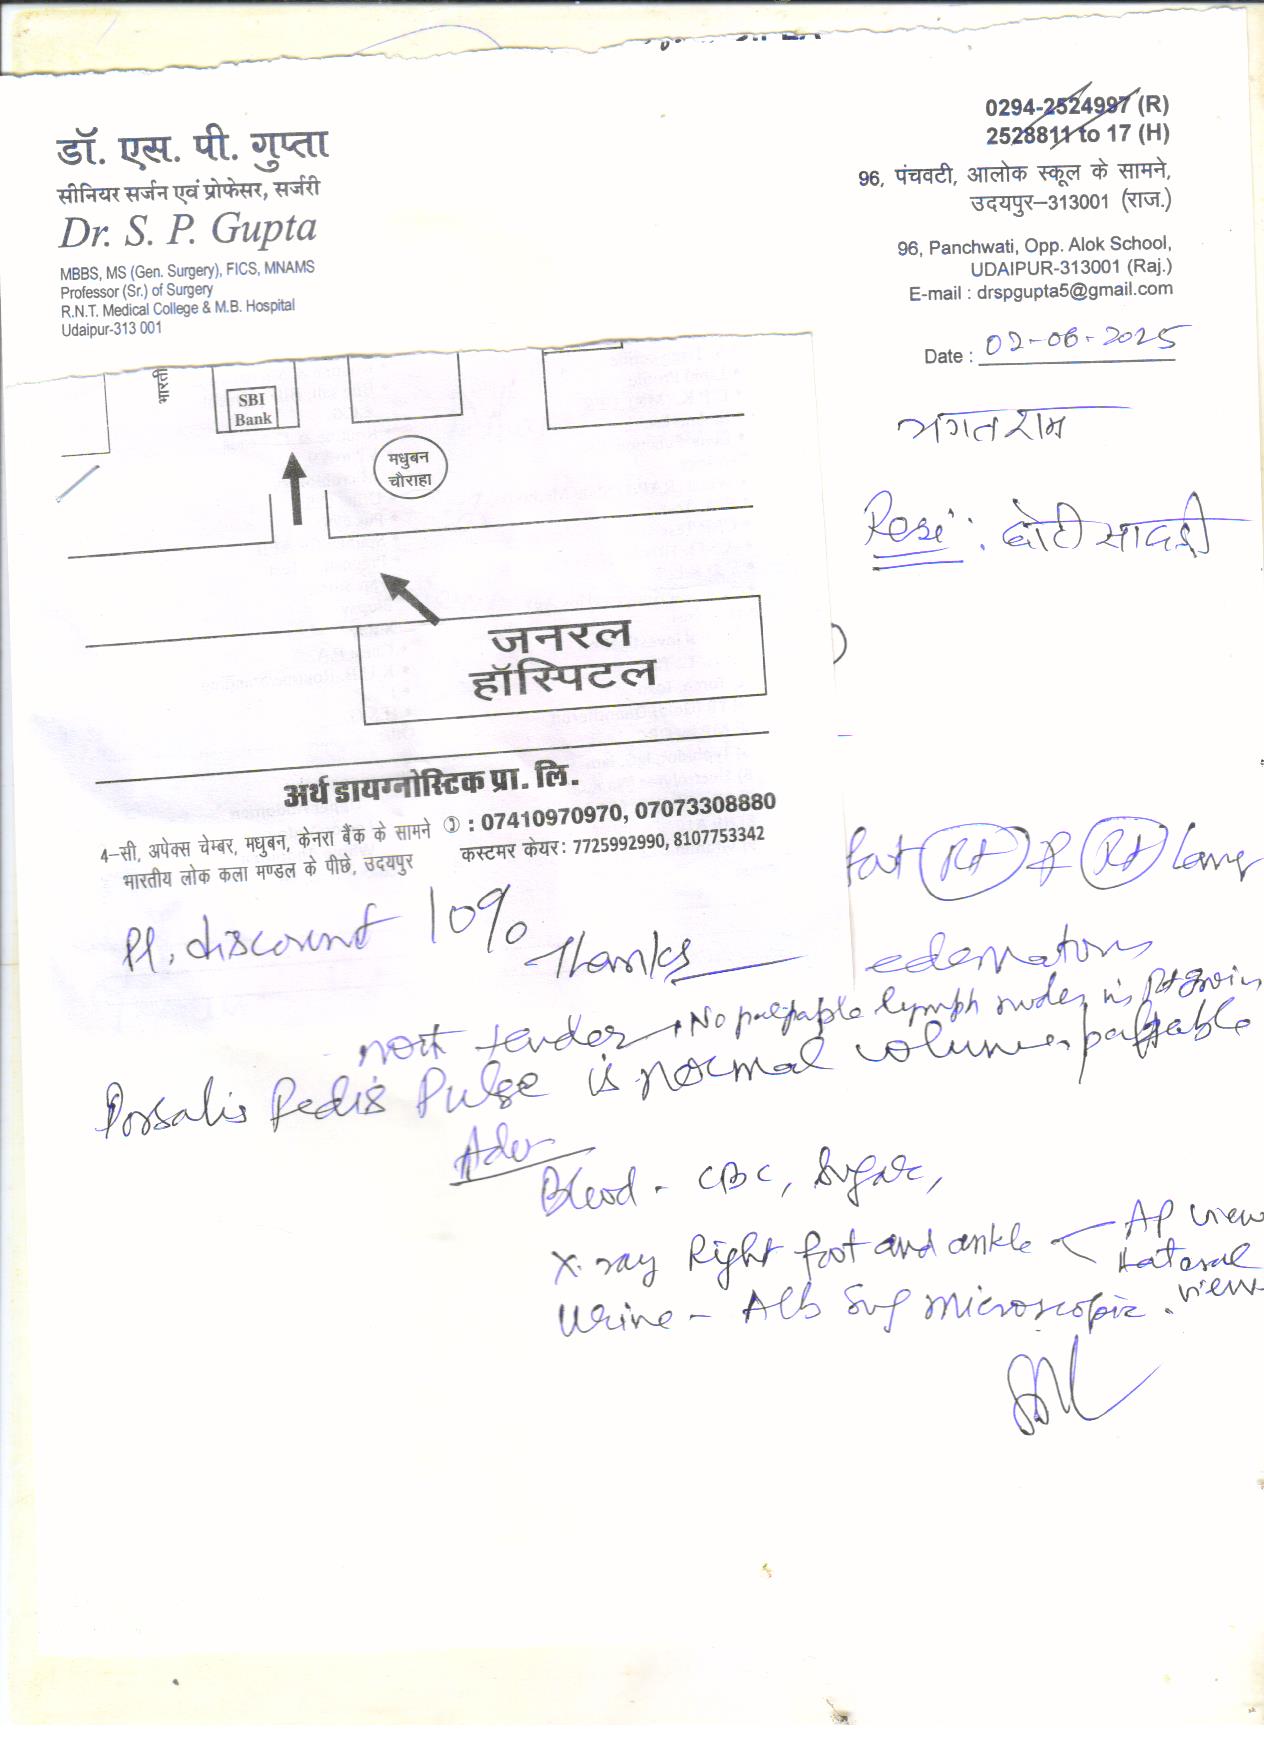 0294-2524997 (R)
2528811 to 17 (H)
डॉ. एस. पी. गुप्ता
सीनियर सर्जन एवं प्रोफेसर, सर्जरी
Dr. S. P. Gupta
MBBS, MS (Gen. Surgery), FICS, MNAMS
Professor (Sr.) of Surgery
R.N.T. Medical College & M.B. Hospital
Udaipur-313 001
96, पंचवटी, आलोक स्कूल के सामने,
उदयपुर–313001 (राज.)
96, Panchwati, Opp. Alok School,
UDAIPUR-313001 (Raj.)
E-mail : drspgupta5@gmail.com
Date : 02-06-2025
भगतराम
Resi : छोटी सादड़ी
भारती
SBI
Bank
मधुबन
चौराहा
जनरल
हॉस्पिटल
अर्थ डायग्नोस्टिक प्रा. लि.
4–सी, अपेक्स चेम्बर, मधुबन, केनरा बैंक के सामने
भारतीय लोक कला मण्डल के पीछे, उदयपुर
: 07410970970, 07073308880
कस्टमर केयर: 7725992990, 8107753342
Pl. discount 10%
Thanks
foot Rt & Rt Leg
edematous
not tender, No palpable lymph nodes in Rt groin
Dorsalis Pedis Pulse is normal volume, palpable
Adv
Blood - CBC, Sugar,
X-ray Right foot and ankle < AP view
Lateral view
Urine - Alb Sug microscopic.